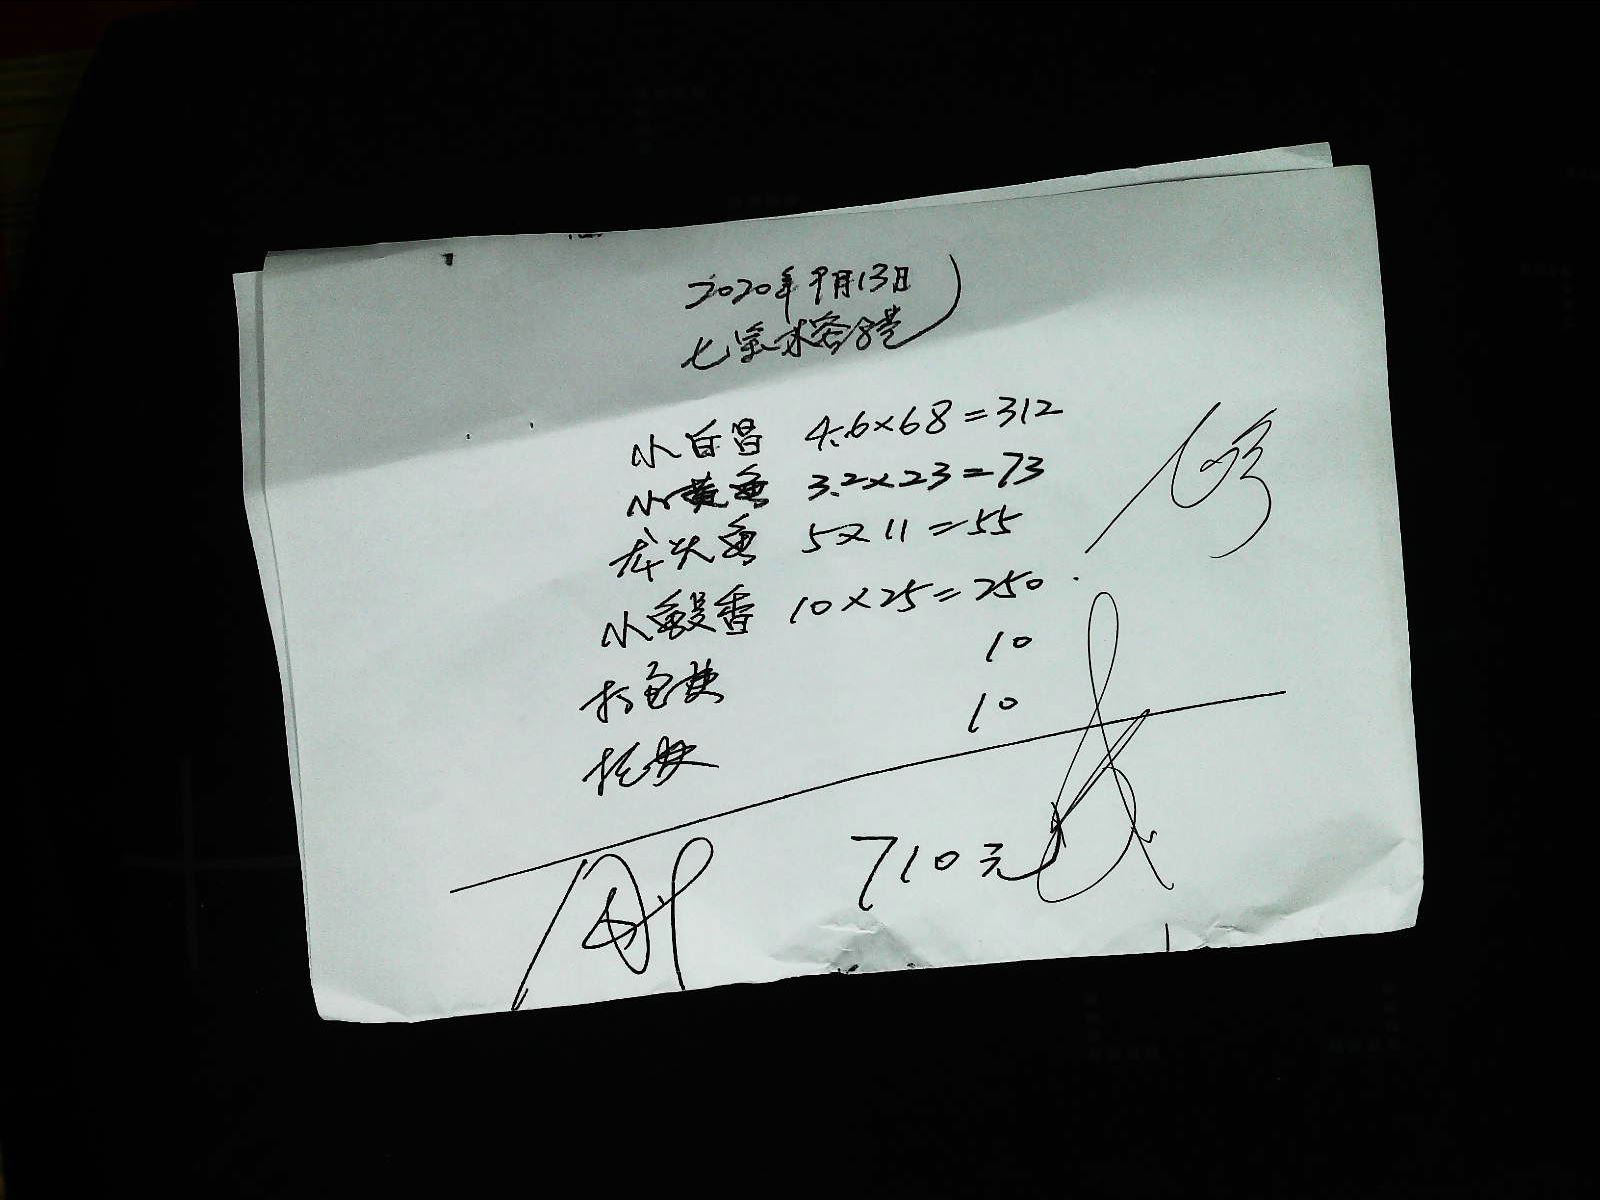 2020年9月13日
七星水客8号
小白昌 4.6×68=312
小黄鱼 3.2×23=73
龙头鱼 5×11=55
小鱼香 10×25=250
打包费 10
托费 10
710元